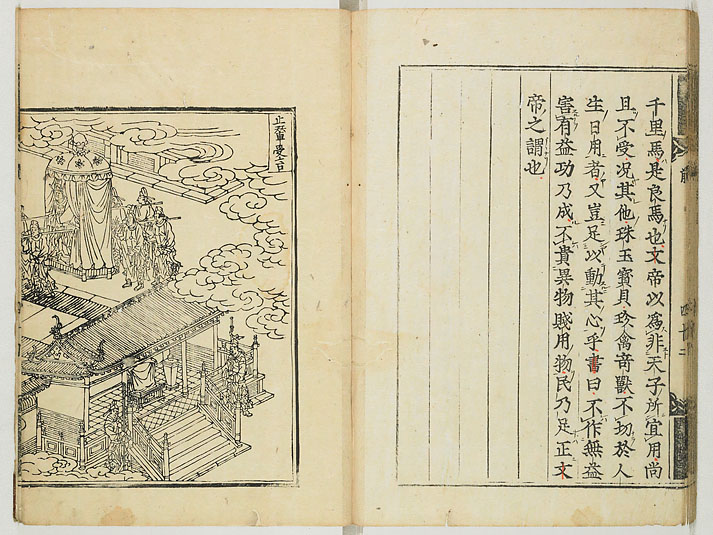 千里馬是良馬也文帝以為非天子所宜用尚
且不受況其他珠玉寶貝珍禽奇獸不切於人
生日用者又豈足以動其心乎書曰不作無益
害有益功乃成不貴異物賤用物民乃足正文
帝之謂也
止輦受言